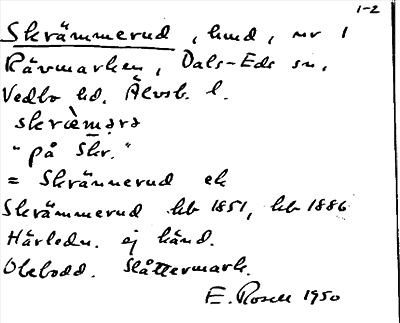 1-2
Skrämmerud, hmd, nr 1
Rävmarken, Dals-Eds sn,
Vedbo hd. Älvsb. l.
skræ̀mərə
"på Skr."
= Skrännerud ek
Skrämmerud hb 1851, hb 1886
Härledn. ej känd.
Obebodd. Slåttermark.
E. Rosell 1950